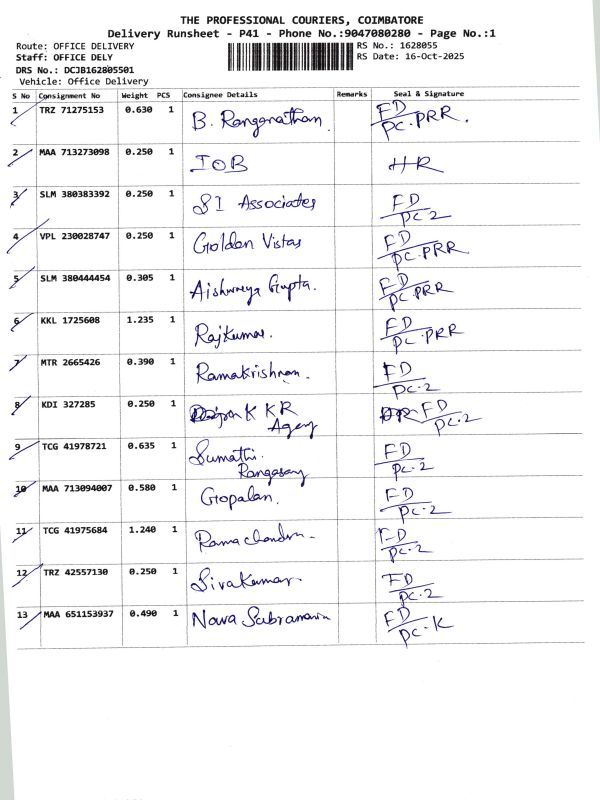 THE PROFESSIONAL COURIERS, COIMBATORE
Delivery Runsheet - P41 - Phone No.:9047080280 - Page No.:1
Route: OFFICE DELIVERY RS No.: 1628055
Staff: OFFICE DELY RS Date: 16-Oct-2025
DRS No.: DCJB162805501
Vehicle: Office Delivery
S No Consignment No Weight PCS Consignee Details Remarks Seal & Signature
1 TRZ 71275153 0.630 1 B. Ranganathan FD
PC.PRR.
2 MAA 713273098 0.250 1 IOB HR
3 SLM 380383392 0.250 1 SI Associates FD
PC-2
4 VPL 230028747 0.250 1 Golden Vistas FD
PC.PRR
5 SLM 380444454 0.305 1 Aishwarya Gupta. FD
PC.PRR
6 KKL 1725608 1.235 1 Rajkumar. FD
PC.PRR
7 MTR 2665426 0.390 1 Ramakrishnan. FD
PC-2
8 KDI 327285 0.250 1 KKR FD
Agency PC-2
9 TCG 41978721 0.635 1 Sumathi. FD
Rangasamy PC-2
10 MAA 713094007 0.580 1 Gopalan. FD
PC-2
11 TCG 41975684 1.240 1 Ramachandran FD
PC-2
12 TRZ 42557130 0.250 1 Sivakumar. FD
PC-2
13 MAA 651153937 0.490 1 Nava Subramani FD
PC-K